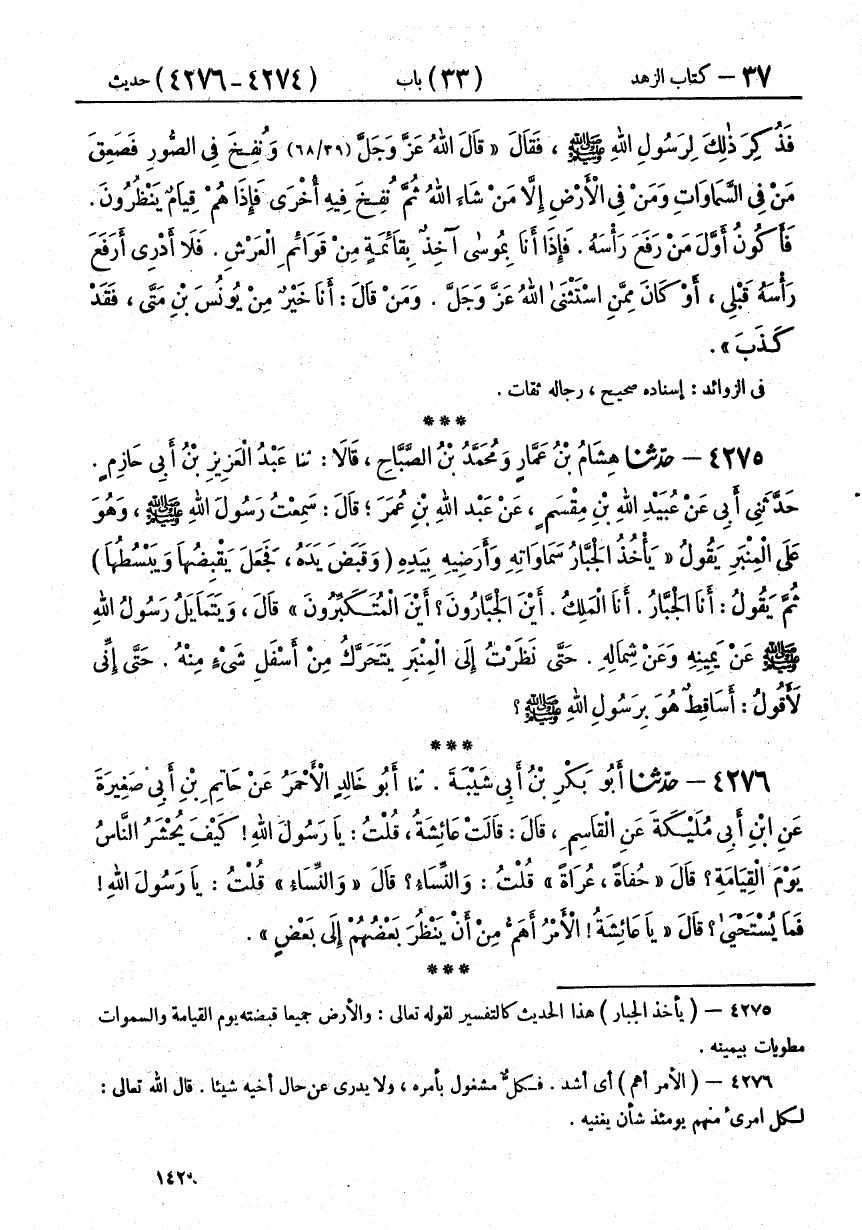 ٣٧ – كتاب الزهد (٣٣) باب (٤٢٧٤-٤٢٧٦) حديث
فَذُكِرَ ذٰلِكَ لِرَسُولِ اللهِ ﷺ ، فَقَالَ « قَالَ اللهُ عَزَّ وَجَلَّ (٦٨/٣٩) وَنُفِخَ فِى الصُّورِ فَصَعِقَ
مَنْ فِى السَّمَاوَاتِ وَمَنْ فِى الْأَرْضِ إِلَّا مَنْ شَاءَ اللهُ ثُمَّ نُفِخَ فِيهِ أُخْرَى فَإِذَا هُمْ قِيَامٌ يَنْظُرُونَ .
فَأَكُونُ أَوَّلَ مَنْ رَفَعَ رَأْسَهُ . فَإِذَا أَنَا بِمُوسٰى آخِذٌ بِقَائِمَةٍ مِنْ قَوَائِمِ الْعَرْشِ . فَلَا أَدْرِى أَرَفَعَ
رَأْسَهُ قَبْلِى ، أَوْ كَانَ مِمَّنِ اسْتَثْنَى اللهُ عَزَّ وَجَلَّ . وَمَنْ قَالَ : أَنَا خَيْرٌ مِنْ يُونُسَ بْنِ مَتَّى ، فَقَدْ
كَذَبَ » .
فى الزوائد : إسناده صحيح ، رجاله ثقات .
***
٤٢٧٥ – حدّثنا هِشَامُ بْنُ عَمَّارٍ وَمُحَمَّدُ بْنُ الصَّبَّاحِ ، قَالَا : ثنا عَبْدُ الْعَزِيزِ بْنُ أَبِى حَازِمٍ .
حَدَّثَنِى أَبِى عَنْ عُبَيْدِ اللهِ بْنِ مِقْسَمٍ ، عَنْ عَبْدِ اللهِ بْنِ عُمَرَ ؛ قَالَ : سَمِعْتُ رَسُولَ اللهِ ﷺ ، وَهُوَ
عَلَى الْمِنْبَرِ يَقُولُ « يَأْخُذُ الْجَبَّارُ سَمَاوَاتِهِ وَأَرَضِيهِ بِيَدِهِ ( وَقَبَضَ يَدَهُ ، فَجَعَلَ يَقْبِضُهَا وَيَبْسُطُهَا )
ثُمَّ يَقُولُ : أَنَا الْجَبَّارُ . أَنَا الْمَلِكُ . أَيْنَ الْجَبَّارُونَ ؟ أَيْنَ الْمُتَكَبِّرُونَ » قَالَ ، وَيَتَمَايَلُ رَسُولُ اللهِ
ﷺ عَنْ يَمِينِهِ وَعَنْ شِمَالِهِ . حَتَّى نَظَرْتُ إِلَى الْمِنْبَرِ يَتَحَرَّكُ مِنْ أَسْفَلِ شَىْءٍ مِنْهُ . حَتَّى إِنِّى
لَأَقُولُ : أَسَاقِطٌ هُوَ بِرَسُولِ اللهِ ﷺ ؟
***
٤٢٧٦ – حدّثنا أَبُو بَكْرِ بْنُ أَبِى شَيْبَةَ . ثنا أَبُو خَالِدٍ الْأَحْمَرُ عَنْ حَاتِمِ بْنِ أَبِى صَغِيرَةَ
عَنِ ابْنِ أَبِى مُلَيْكَةَ عَنِ الْقَاسِمِ ، قَالَ : قَالَتْ عَائِشَةُ ، قُلْتُ : يَا رَسُولَ اللهِ ! كَيْفَ يُحْشَرُ النَّاسُ
يَوْمَ الْقِيَامَةِ ؟ قَالَ « حُفَاةً ، عُرَاةً » قُلْتُ : وَالنِّسَاءُ ؟ قَالَ « وَالنِّسَاءُ » قُلْتُ : يَا رَسُولَ اللهِ !
فَمَا يُسْتَحْيٰى ؟ قَالَ « يَا عَائِشَةُ ! الْأَمْرُ أَهَمُّ مِنْ أَنْ يَنْظُرَ بَعْضُهُمْ إِلَى بَعْضٍ » .
***
٤٢٧٥ – ( يأخذ الجبار ) هذا الحديث كالتفسير لقوله تعالى : والأرض جميعا قبضته يوم القيامة والسموات
مطويات بيمينه .
٤٢٧٦ – ( الأمر أهم ) أى أشد . فكلٌّ مشغول بأمره ، ولا يدرى عن حال أخيه شيئا . قال الله تعالى :
لكل امرىء منهم يومئذ شأن يغنيه .